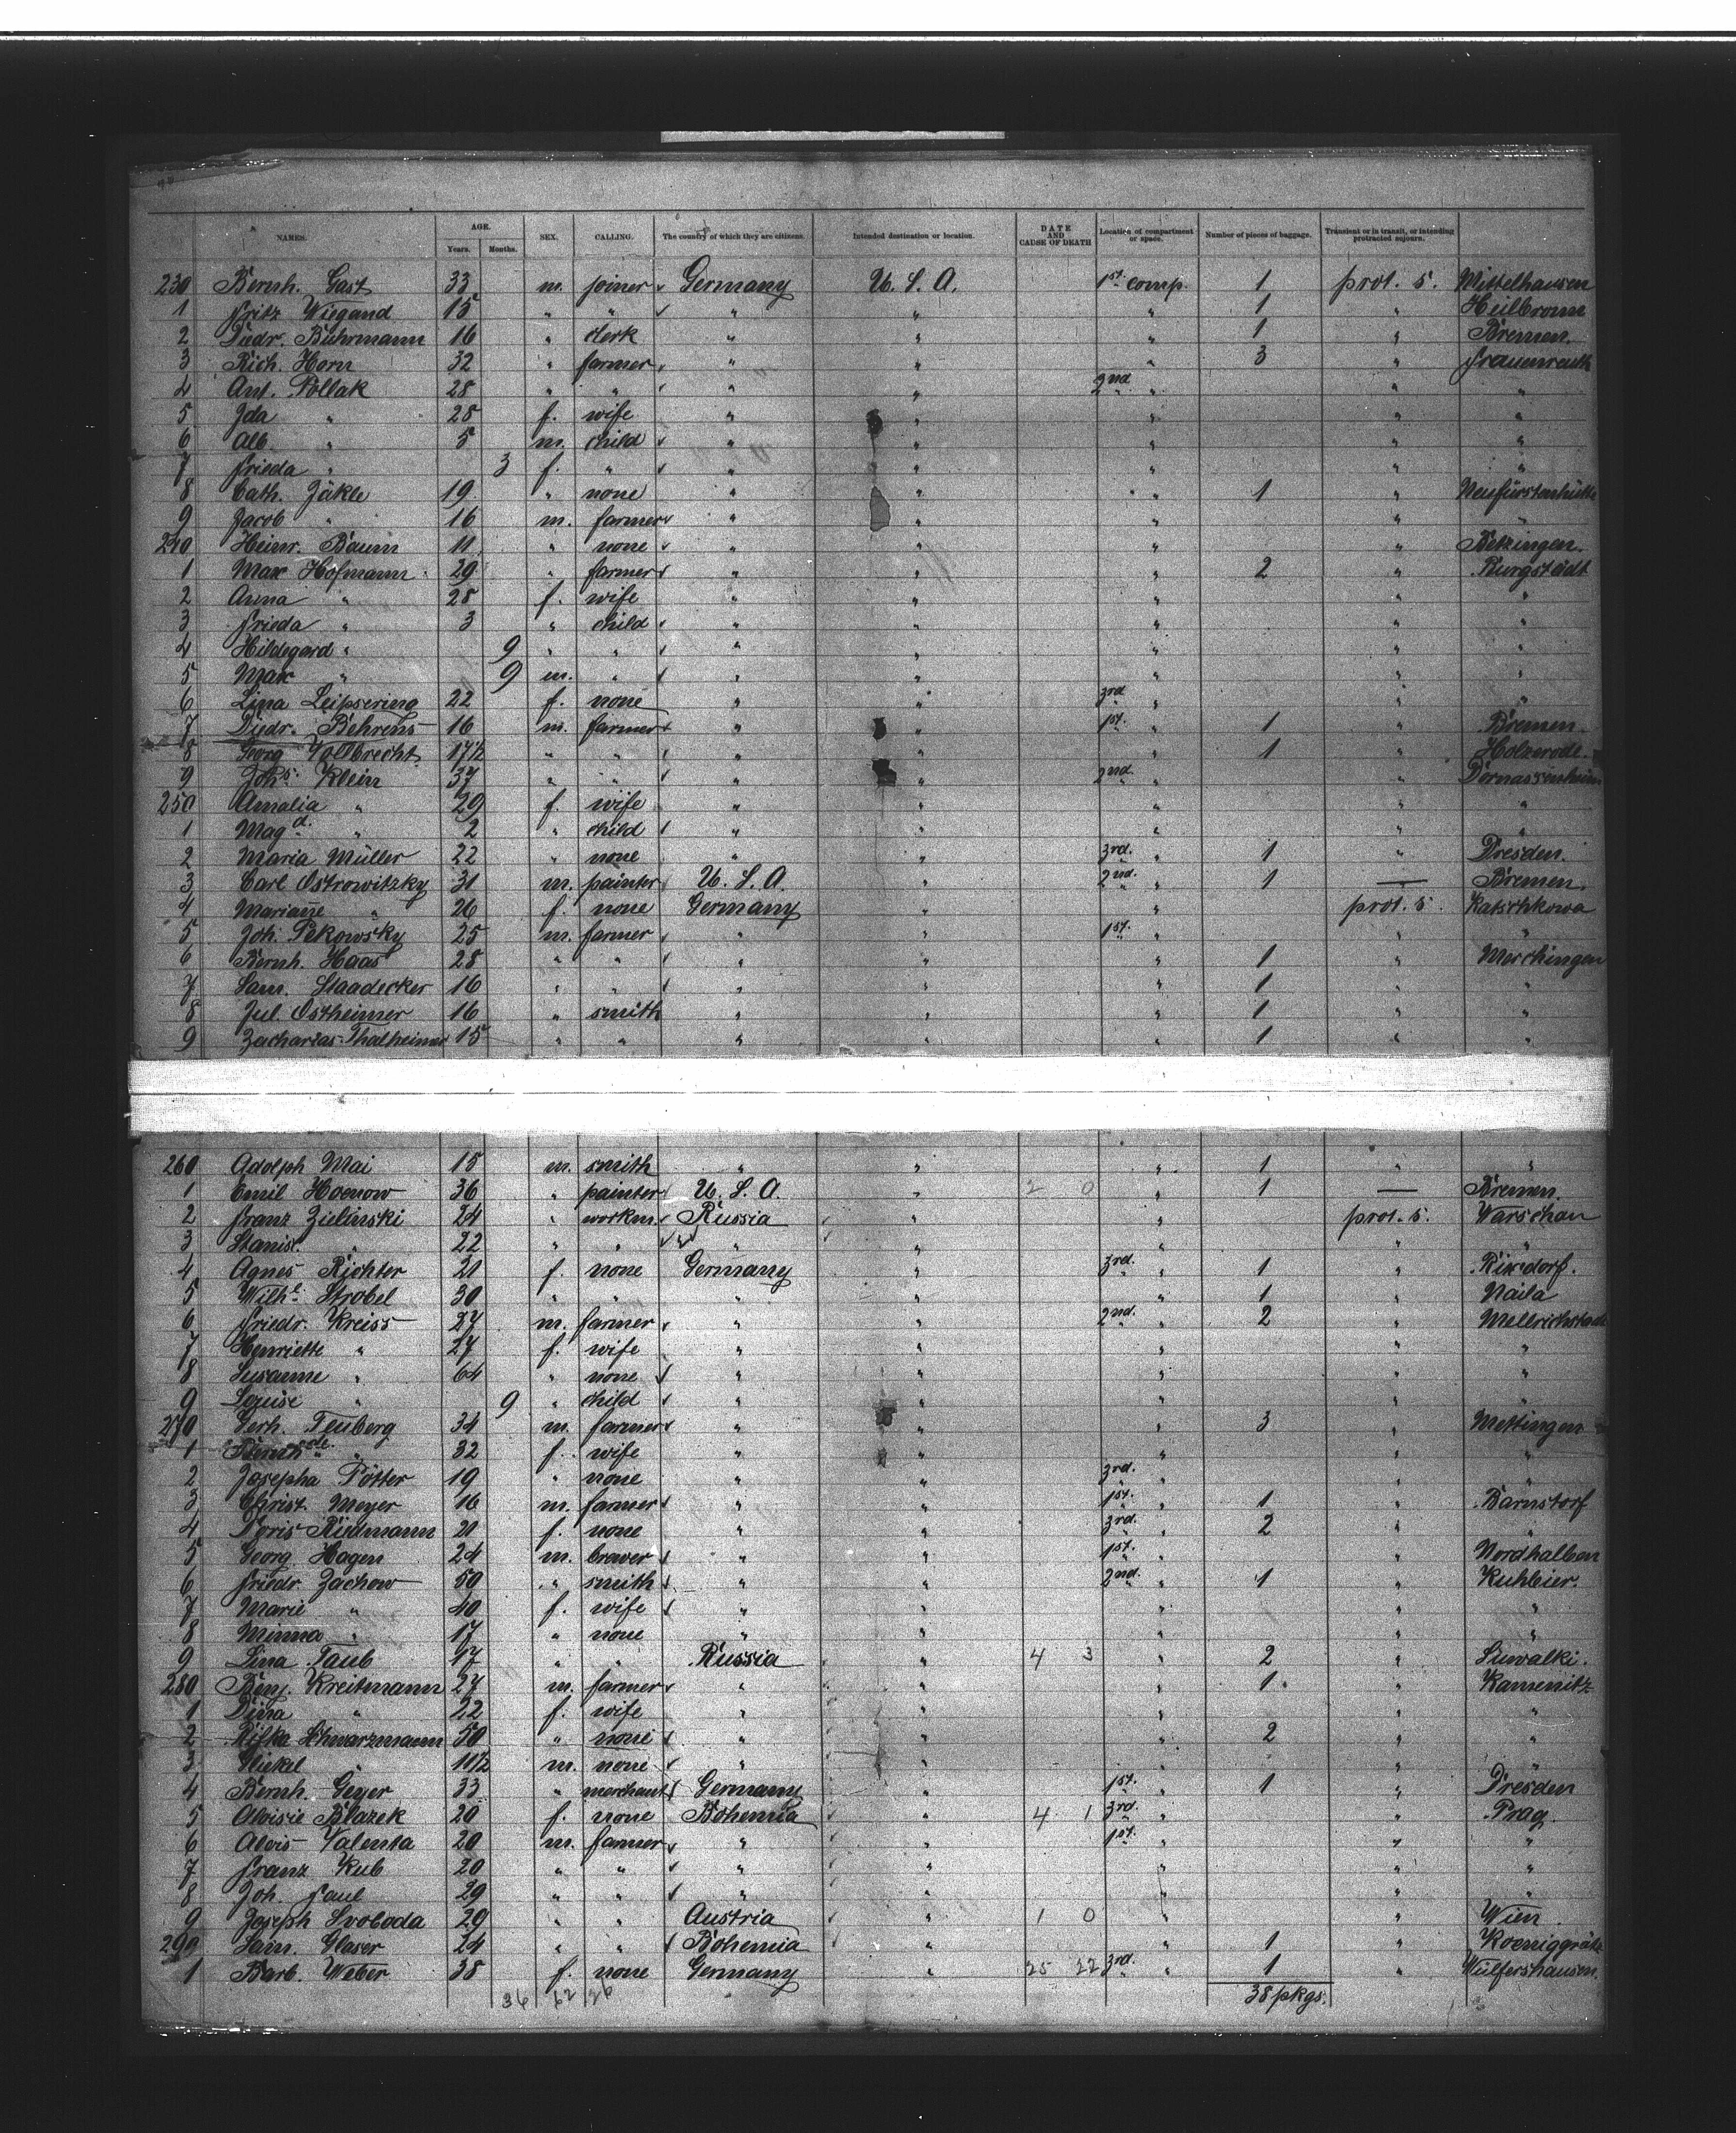 NAMES. AGE. Years. Months. SEX. CALLING. The country of which they are citizens. Intended destination or location. DATE AND CAUSE OF DEATH Location of compartment or space. Number of pieces of baggage. Transient or in transit, or intending protracted sojourn.
230 Bernh. Gast 33 m. joiner Germany U. S. A. 1st. comp. 1 prot. s. Mittelhausen
1 Fritz Wiegand 15 " " " " " 1 " Heilbronn
2 Diedr. Buhrmann 16 " clerk " " " 1 " Bremen.
3 Rich. Horn 32 " farmer " " " 3 " Fraureuth
4 Ant. Pollak 28 " " " " 2nd " " "
5 Ida " 28 f. wife " " " " "
6 Alb. " 5 m. child " " " " "
7 Frieda " 3 f. " " " " " "
8 Cath. Jäkle 19 " none " " " 1 " Neufürstenhütte
9 Jacob " 16 m. farmer " " " " "
240 Heinr. Baum 11 " none " " " " Betzingen.
1 Max Hofmann 29 " farmer " " " 2 " Burgstädt
2 Anna " 28 f. wife " " " " "
3 Frieda " 3 " child " " " " "
4 Hildegard " 9 " " " " " " "
5 Max " 9 m. " " " " " "
6 Lina 22 f. none " " 3rd " " "
7 Diedr. Behrens 16 m. farmer " " 1st. " 1 " Bremen.
8 Georg Vollbrecht 17½ " " " " " 1 " Holzerode.
9 Johs. Klein 37 " " " " 2nd. " " Dornassenheim
250 Amalia " 29 f. wife " " " " "
1 Magd. " 2 " child " " " " "
2 Maria Müller 22 " none " " 3rd. " 1 " Dresden.
3 Carl Ostrowitzky 31 m. painter U. S. A. " 2nd. " 1 — Bremen.
4 Mariane " 26 f. none Germany " " prot. s. Katschkowa
5 Joh. Pekowsky 25 m. farmer " " 1st. " " "
6 Bernh. Haas 28 " " " " " 1 Merchingen
7 Sam. Staadecker 16 " " " " " 1 " "
8 Jul. Ostheimer 16 " smith " " " 1 " "
9 Zacharias Thalheimer 15 " " " " " 1 " "
260 Adolph Mai 15 m. smith " " " 1 " "
1 Emil Hoenow 36 " painter U. S. A. " 2 0 " 1 — Bremen.
2 Franz Zielinski 24 " workm. Russia " " prot. s. Warschau
3 Stanisl. " 22 " " " " " " "
4 Agnes Richter 21 f. none Germany " 3rd. " 1 " Rixdorf.
5 Wilhe. Strobel 30 " " " " " 1 " Naila
6 Friedr. Kreiss 27 m. farmer " " 2nd. " 2 " Mellrichstadt
7 Henriette " 27 f. wife " " " " "
8 Susanne " 64 " none " " " " "
9 Louise " 9 " child " " " " "
270 Gerh. Feuberg 34 m. farmer " " " 3 " Mettingen
1 " 32 f. wife " " " " "
2 Josepha Pötter 19 " none " " 3rd. " " "
3 Christ. Meyer 16 m. farmer " " 1st. " 1 " Barnstorf
4 Doris Riedmann 21 f. none " " 3rd. " 2 " "
5 Georg Hagen 24 m. brewer " " 1st. " " Nordhalben
6 Friedr. Zachow 50 " smith " " 2nd. " 1 " Kuhbier.
7 Marie " 40 f. wife " " " " "
8 Minna " 17 " none " " " " "
9 Lina Taub 17 " " Russia " 4 3 " 2 " Suwalki.
280 Benj. Kreitmann 27 m. farmer " " " 1 " Kamenitz
1 Dina " 22 f. wife " " " " "
2 Rifka Schwarzmann 50 " none " " " 2 " "
3 " 11½ m. none " " " " "
4 Bernh. Geyer 33 " merchant Germany " 1st. " 1 " Dresden
5 Aloisie Blazek 20 f. none Bohemia " 4 1 3rd. " " Prag.
6 Alois Valenta 20 m. farmer " " 1st. " " "
7 Franz Kub 20 " " " " " " "
8 Joh. Paul 29 " " " " " " "
9 Joseph Svoboda 29 " " Austria " 1 0 " " Wien.
290 Sam. Glaser 24 " " Bohemia " " 1 " Koeniggrätz
1 Barb. Weber 38 f. none Germany " 25 22 3rd. " 1 " Wülfershausen.
36 62 26 38 pkgs.